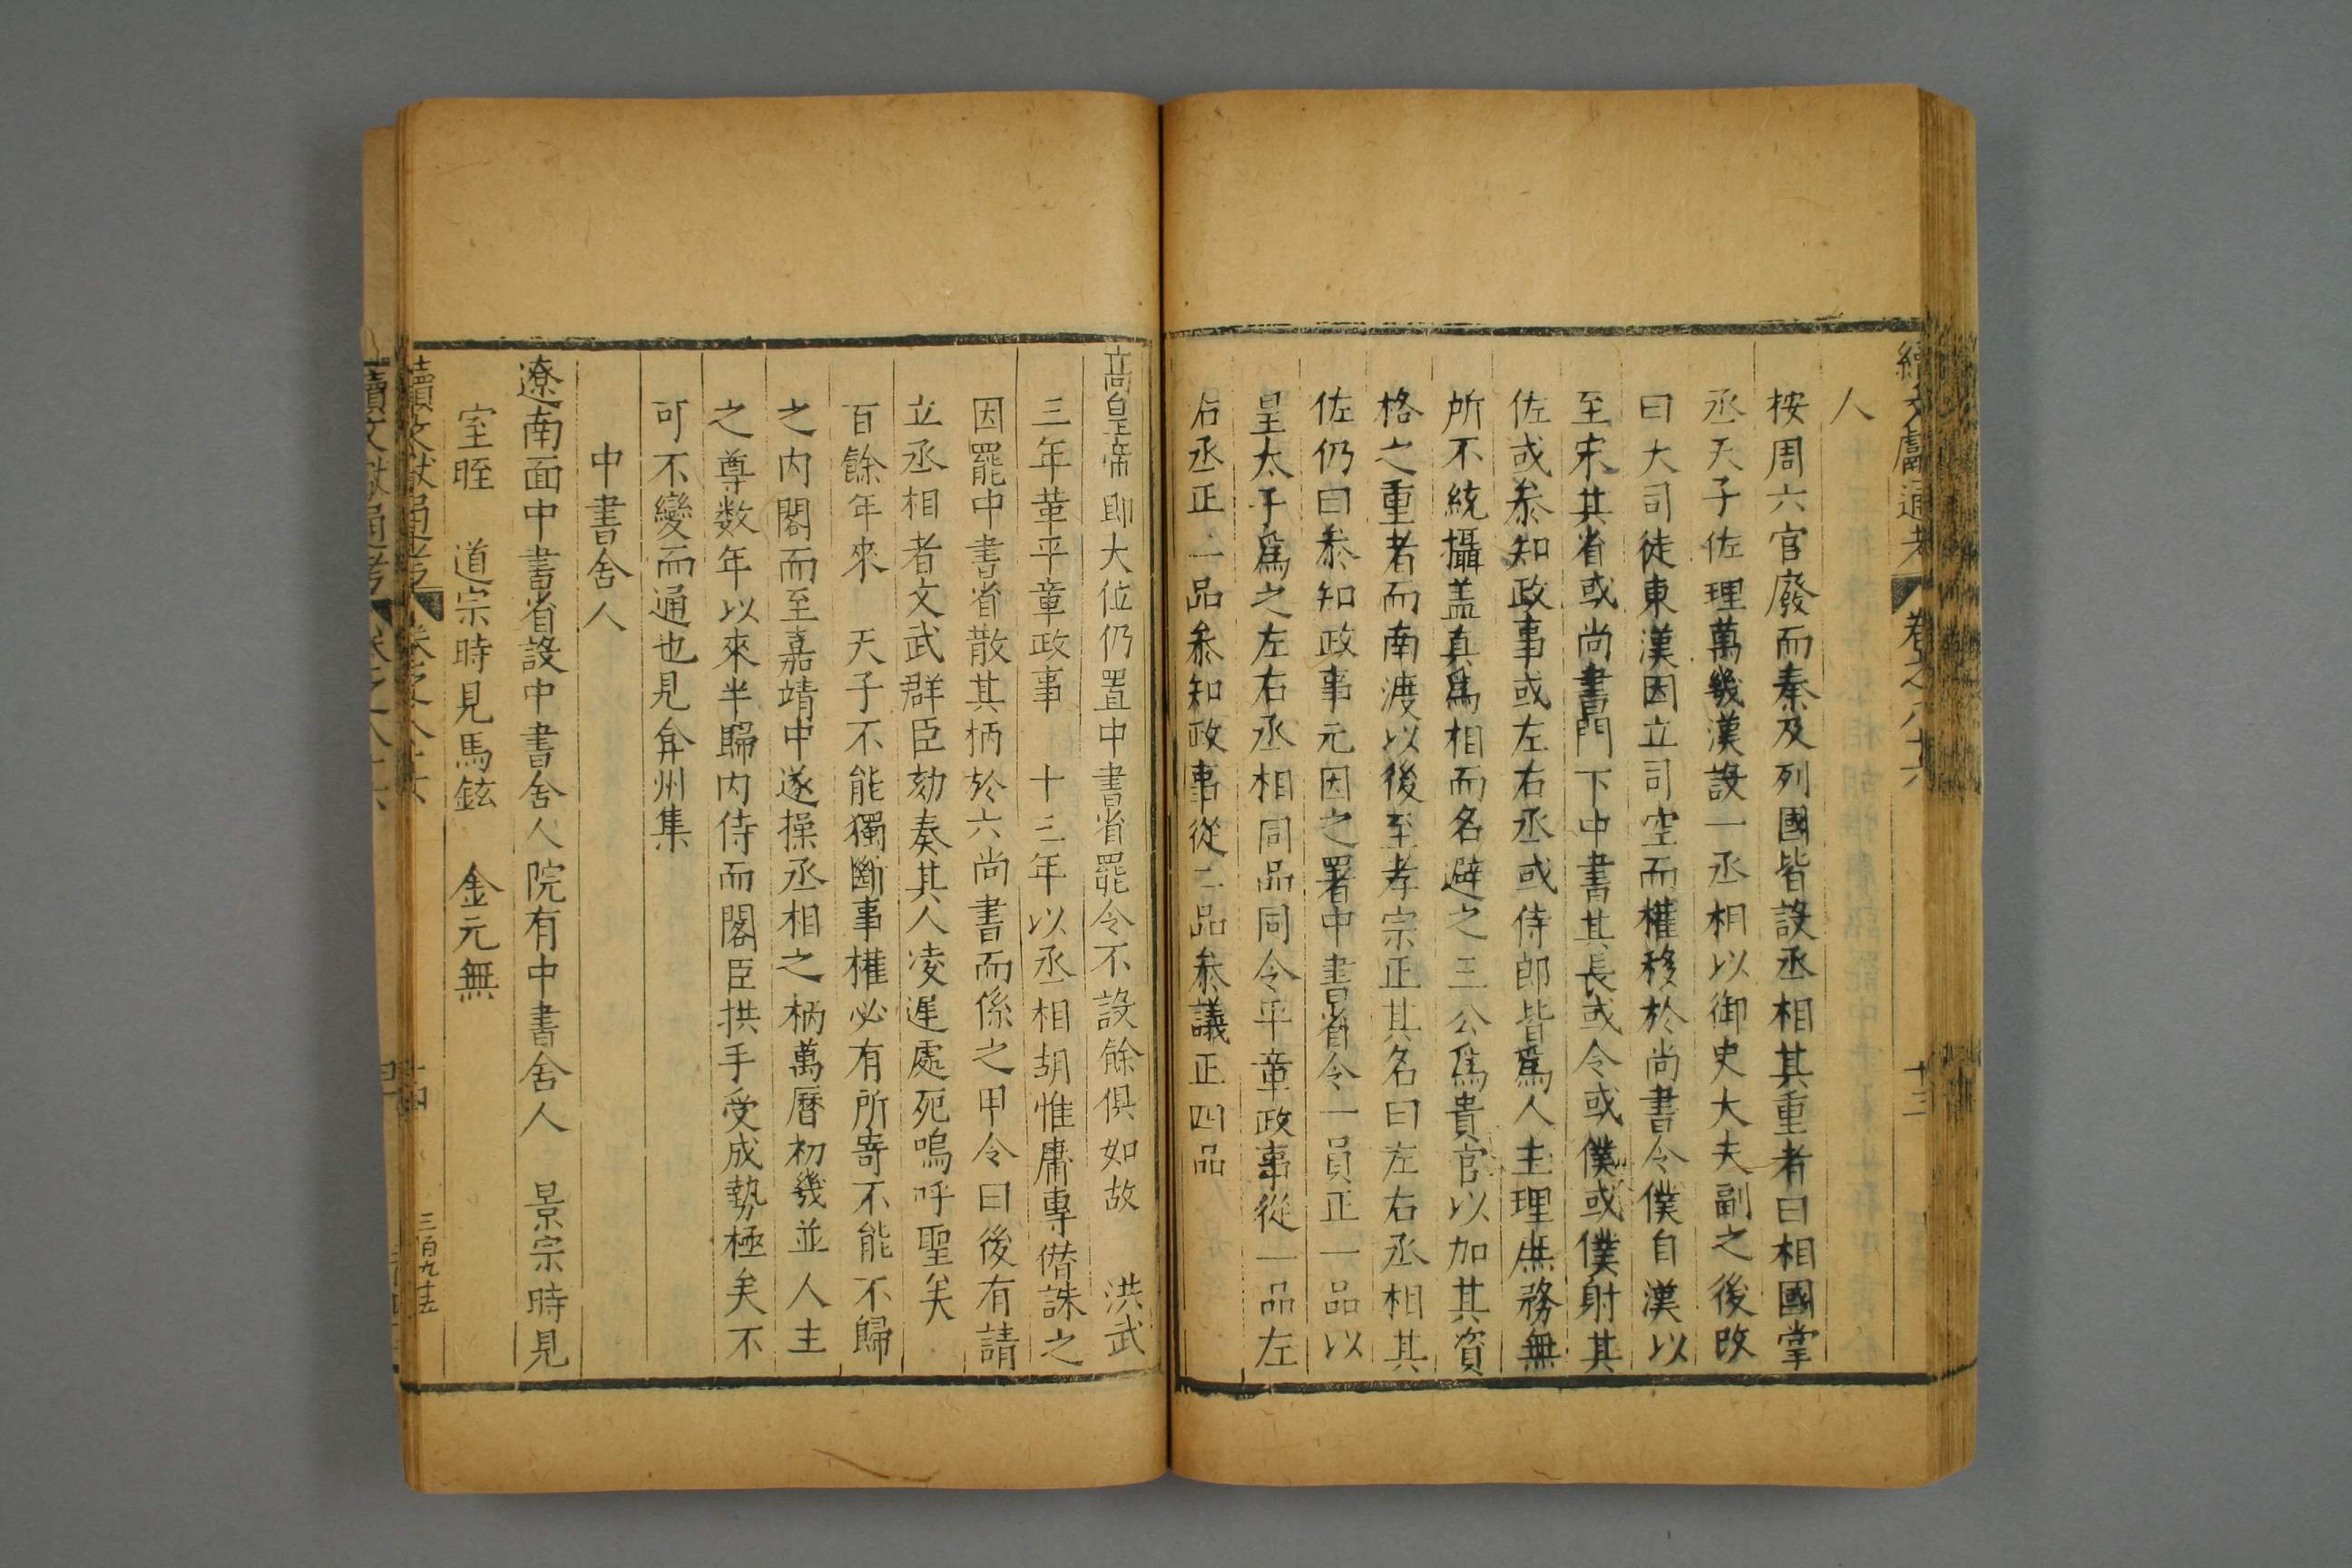 續文獻通考 卷之八十六 十三
人
按周六官廢而秦及列國皆設丞相其重者曰相國掌
丞天子佐理萬幾漢設一丞相以御史大夫副之後改
曰大司徒東漢因立司空而權移於尚書令僕自漢以
至宋其省或尚書門下中書其長或令或僕或僕射其
佐或叅知政事或左右丞或侍郎皆爲人主理庶務無
所不統攝盖真爲相而名避之三公爲貴官以加其資
格之重者而南渡以後至孝宗正其名曰左右丞相其
佐仍曰叅知政事元因之署中書省令一員正一品以
皇太子爲之左右丞相同品同令平章政事從一品左
右丞正一品叅知政事從二品叅議正四品
高皇帝即大位仍置中書省罷令不設餘俱如故 洪武
三年革平章政事 十三年以丞相胡惟庸專僣誅之
因罷中書省散其柄於六尚書而係之甲令曰後有請
立丞相者文武群臣劾奏其人凌遲處死嗚呼聖矣
百餘年來 天子不能獨斷事權必有所寄不能不歸
之内閣而至嘉靖中遂操丞相之柄萬曆初幾並人主
之尊数年以來半歸内侍而閣臣拱手受成勢極矣不
可不變而通也見弇州集
中書舍人
遼南面中書省設中書舍人院有中書舍人 景宗時見
室昉 道宗時見馬鉉 金元無
續文獻通考 卷之八十六 十四